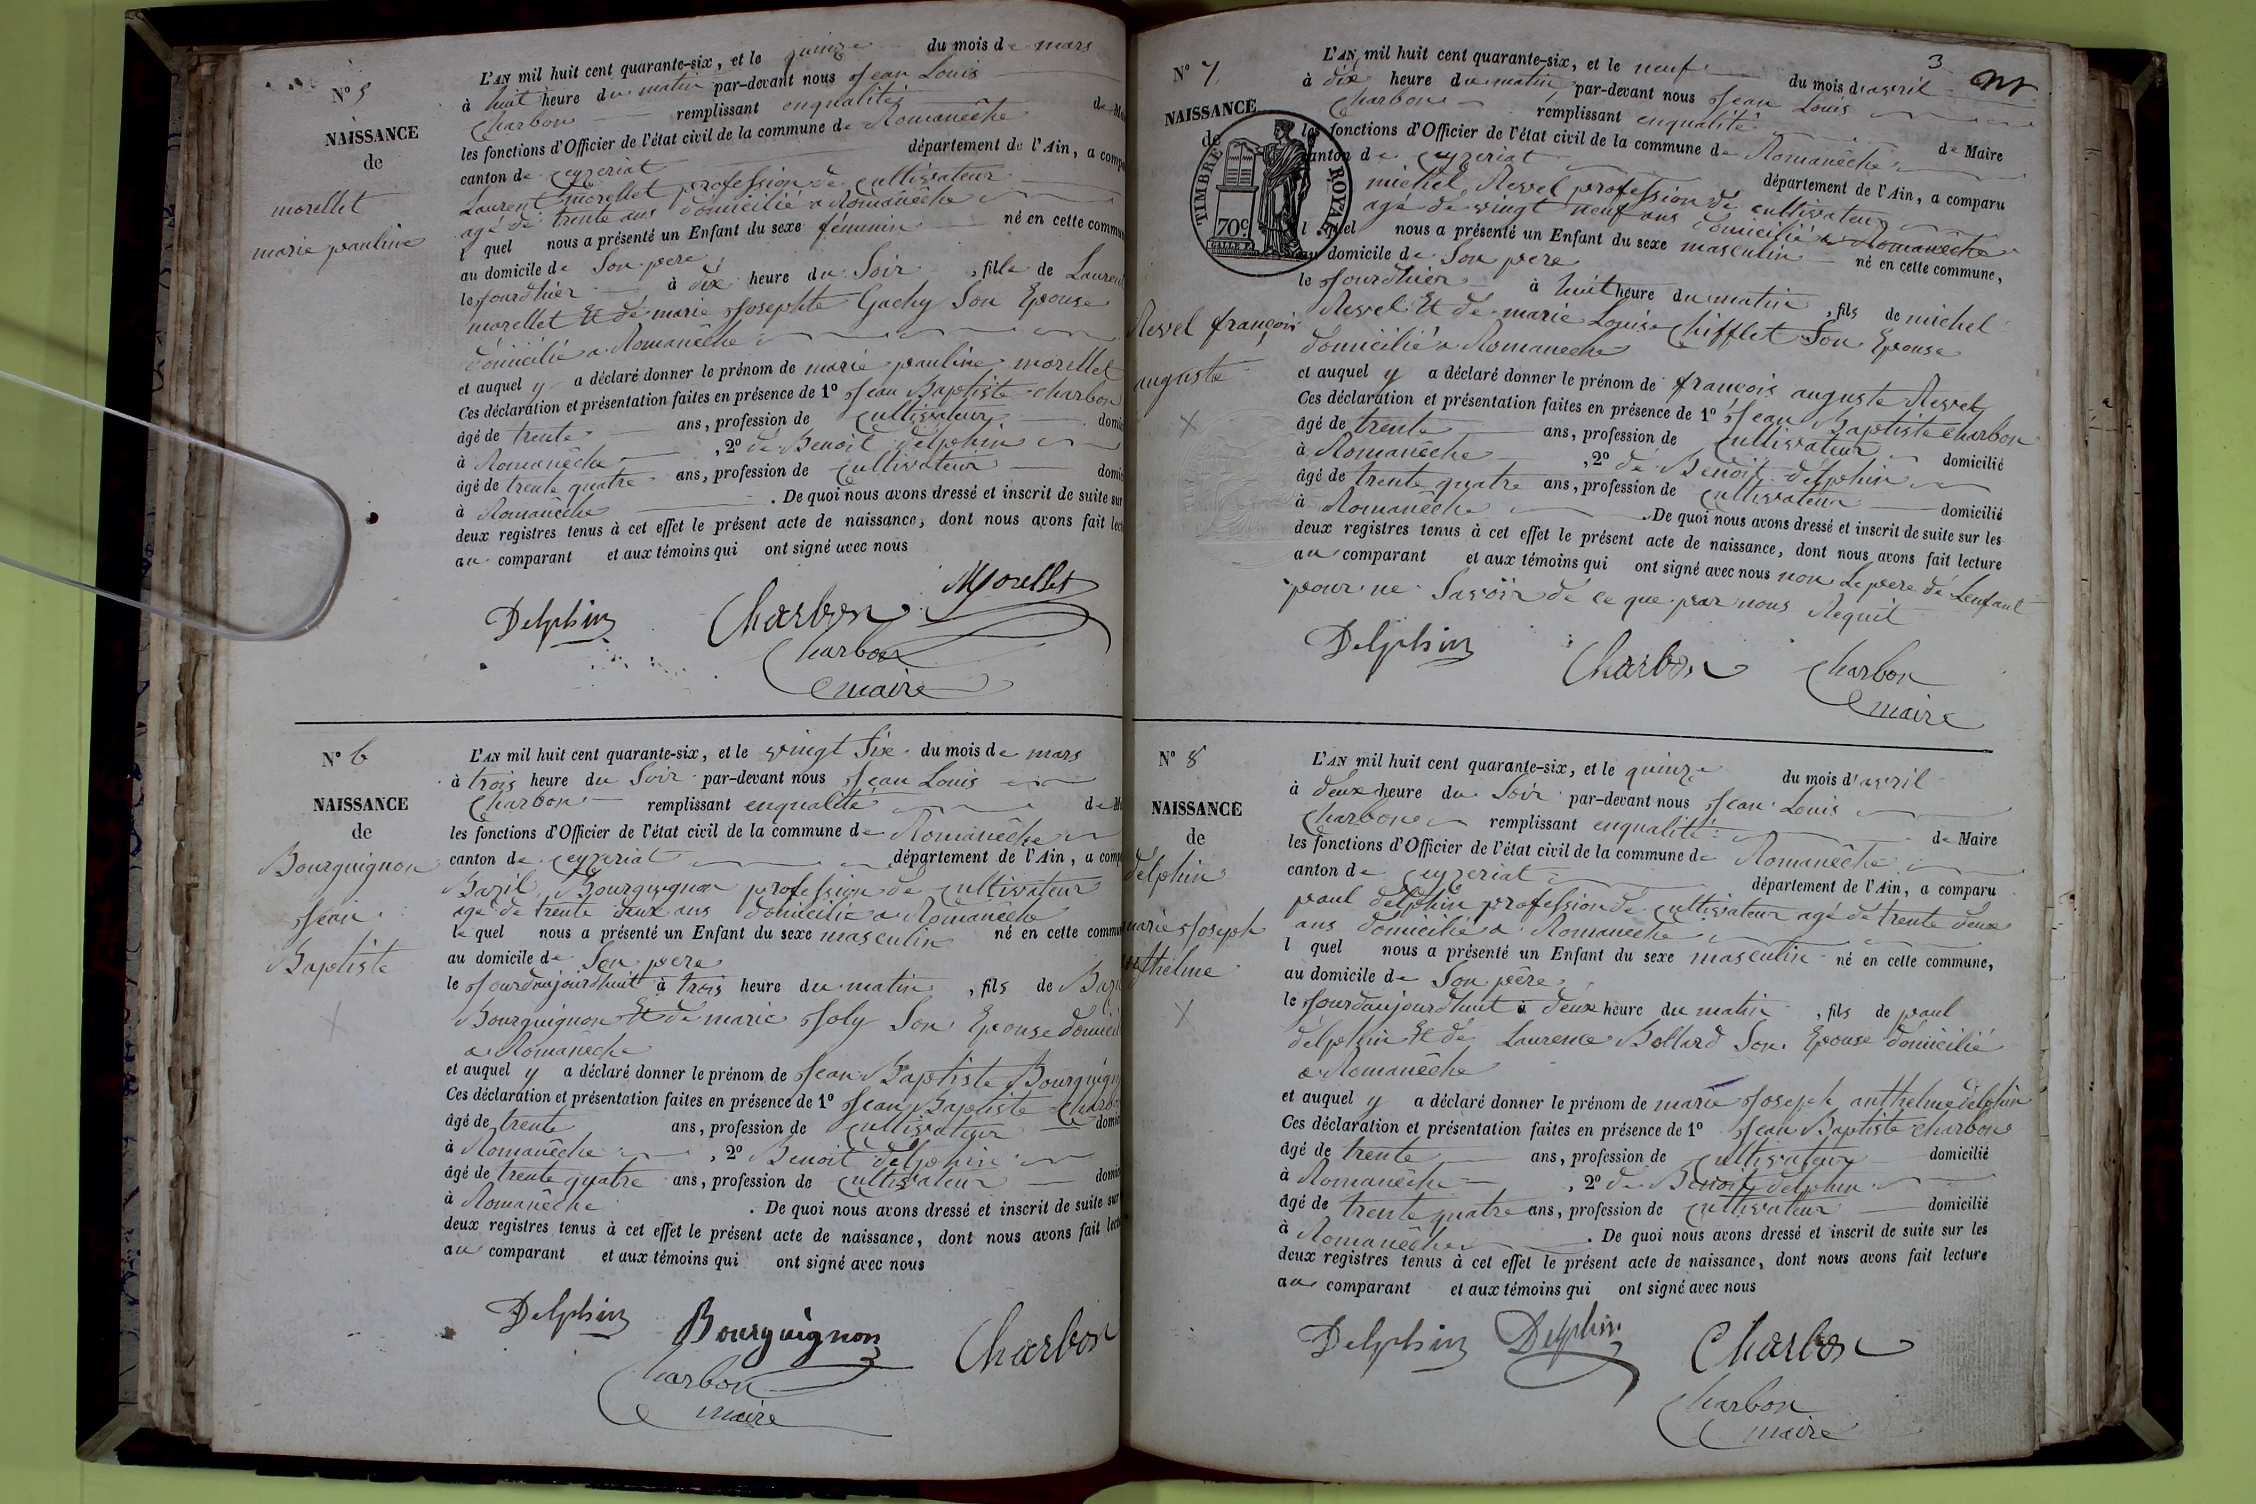 N° 5
NAISSANCE
de
morellet
marie pauline
L'AN mil huit cent quarante-six, et le quinze du mois de mars
à huit heure du matin par-devant nous Jean Louis
Charbon remplissant enqualité de
les fonctions d'Officier de l'état civil de la commune de Romanêche
canton de ceyzeriat département de l'Ain, a comp
Laurent morellet profession de cultivateur
agé de trente ans domicilié a Romanêche
l quel nous a présenté un Enfant du sexe féminin né en cette commu
au domicile de Son pere
le Jourdhier à dix heure du Soir, fille de Laurent
morellet Et de marie Josephte Gachy Son Epouse
domicilié a Romanêche
et auquel y a déclaré donner le prénom de marie pauline morellet
Ces déclaration et présentation faites en présence de 1° Jean Baptiste charbon
âgé de trente ans, profession de cultivateur domic
à Romanêche, 2° de Benoit delphin
âgé de trente quatre ans, profession de cultivateur domic
à Romanêche. De quoi nous avons dressé et inscrit de suite sur
deux registres tenus à cet effet le présent acte de naissance, dont nous avons fait lect
au comparant et aux témoins qui ont signé avec nous
Morellet
Delphin Charbon
Charbon
maire
N° 6
NAISSANCE
de
Bourguignon
Jean
Baptiste
L'AN mil huit cent quarante-six, et le vingt Six du mois de mars
à trois heure du Soir par-devant nous Jean Louis
Charbon remplissant enqualité de M
les fonctions d'Officier de l'état civil de la commune de Romanêche
canton de ceyzeriat département de l'Ain, a comp
Bazil Bourguignon profession de cultivateur
agé de trente deux ans domicilié a Romanêche
le quel nous a présenté un Enfant du sexe masculin né en cette commu
au domicile de Son pere
le Jourdaujourdhuit à trois heure du matin, fils de Bazil
Bourguignon Et de marie Joly Son Epouse domicil
a Romaneche
et auquel y a déclaré donner le prénom de Jean Baptiste Bourguign
Ces déclaration et présentation faites en présence de 1° Jean Baptiste Charbon
âgé de trente ans, profession de cultivateur domic
à Romanêche, 2° Benoit delphin
âgé de trente quatre ans, profession de cultivateur domic
à Romanêche. De quoi nous avons dressé et inscrit de suite sur
deux registres tenus à cet effet le présent acte de naissance, dont nous avons fait lect
au comparant et aux témoins qui ont signé avec nous
Delphin Bourguignon Charbon
Charbon
maire
3
N° 7
NAISSANCE
de
TIMBRE ROYAL
70c
Revel françois
auguste
L'AN mil huit cent quarante-six, et le neuf du mois d'avril
à dix heure du matin par-devant nous Jean Louis
Charbon remplissant enqualité de Maire
les fonctions d'Officier de l'état civil de la commune de Romanêche
canton de ceyzeriat département de l'Ain, a comparu
michel Revel profession de cultivateur
agé de vingt neuf ans domicilié a Romanêche
l quel nous a présenté un Enfant du sexe masculin né en cette commune,
au domicile de Son pere
le Jourdhier à huit heure du matin, fils de michel
Revel Et de marie Louise Chifflet Son Epouse
domicilié a Romaneche
et auquel y a déclaré donner le prénom de françois auguste Revel
Ces déclaration et présentation faites en présence de 1° Jean Baptiste charbon
âgé de trente ans, profession de cultivateur domicilié
à Romanêche, 2° de Benoit delphin
âgé de trente quatre ans, profession de cultivateur domicilié
à Romanêche. De quoi nous avons dressé et inscrit de suite sur les
deux registres tenus à cet effet le présent acte de naissance, dont nous avons fait lecture
au comparant et aux témoins qui ont signé avec nous non Le pere de Lenfant
pour ne Savoir de ce que par nous Requit
Delphin Charbon Charbon
maire
N° 8
NAISSANCE
de
delphin
marie Joseph
anthelme
L'AN mil huit cent quarante-six, et le quinze du mois d'avril
à deux heure du Soir par-devant nous Jean Louis
Charbon remplissant enqualité de Maire
les fonctions d'Officier de l'état civil de la commune de Romanêche
canton de ceyzeriat département de l'Ain, a comparu
paul delphin profession de cultivateur agé de trente deux
ans domicilié a Romanêche
l quel nous a présenté un Enfant du sexe masculin né en cette commune,
au domicile de Son père
le Jourdaujourdhuit à deux heure du matin, fils de paul
delphin Et de Laurence Bollard Son Epouse domicilié
a Romanêche
et auquel y a déclaré donner le prénom de marie Joseph anthelme delphin
Ces déclaration et présentation faites en présence de 1° Jean Baptiste charbon
âgé de trente ans, profession de cultivateur domicilié
à Romanêche, 2° de Benoit delphin
âgé de trente quatre ans, profession de cultivateur domicilié
à Romanêche. De quoi nous avons dressé et inscrit de suite sur les
deux registres tenus à cet effet le présent acte de naissance, dont nous avons fait lecture
au comparant et aux témoins qui ont signé avec nous
Delphin Delphin Charbon
Charbon
maire